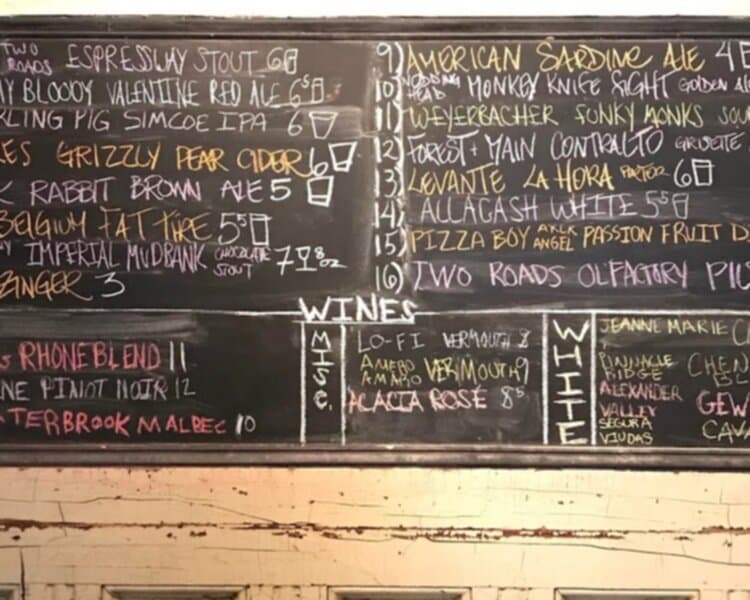 TWO ROADS ESPRESSWAY STOUT 6
Y BLOODY VALENTINE RED ALE 6⁵
RLING PIG SIMCOE IPA 6
ES GRIZZLY PEAR CIDER 6
RABBIT BROWN ALE 5
BELGIUM FAT TIRE 5⁵
IMPERIAL MUDBANK CHOCOLATE STOUT 7 8oz
ZINGER 3
9) AMERICAN SARDINE ALE 4
10) NODDING HEAD MONKEY KNIFE FIGHT GOLDEN AL
11) WEYERBACHER FUNKY MONKS SOU
12) FOREST + MAIN CONTRALTO GRISETTE
13) LEVANTE LA HORA PORTER 6
14) ALLAGASH WHITE 5⁵
15) PIZZA BOY DARK ANGEL PASSION FRUIT D
16) TWO ROADS OLFACTORY PILS
WINES
RHONE BLEND 11
NE PINOT NOIR 12
TERBROOK MALBEC 10
MISC.
LO-FI VERMOUTH 8
AMARO VERMOUTH 9
ACACIA ROSÉ 8⁵
WHITE
JEANNE MARIE C
PINNACLE RIDGE CHEN
ALEXANDER VALLEY GEW
SEGURA VIUDAS CAVA